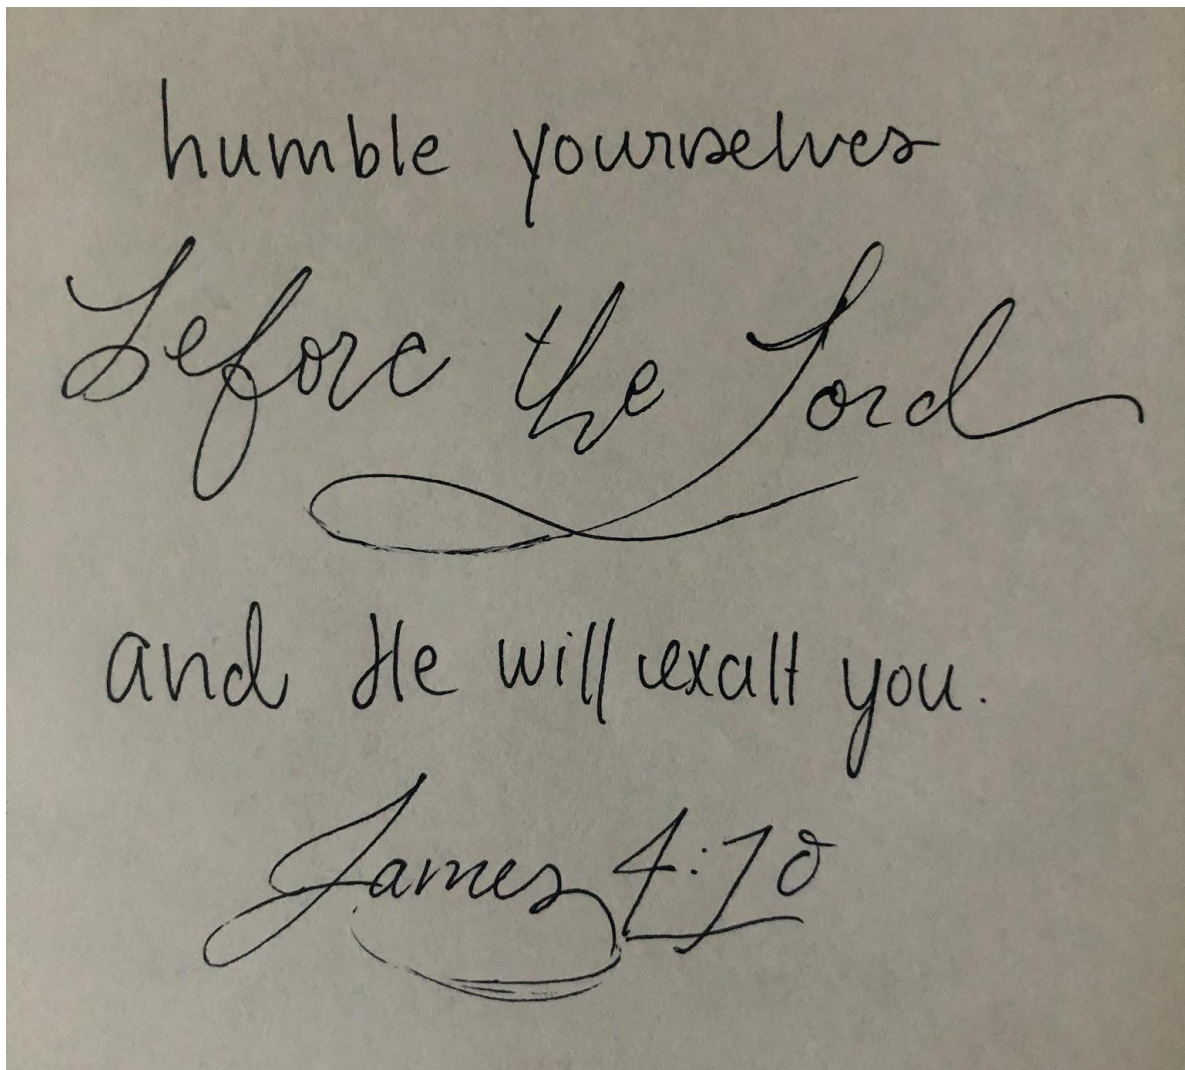 humble yourselves
before the Lord
and He will exalt you.
James 4:10